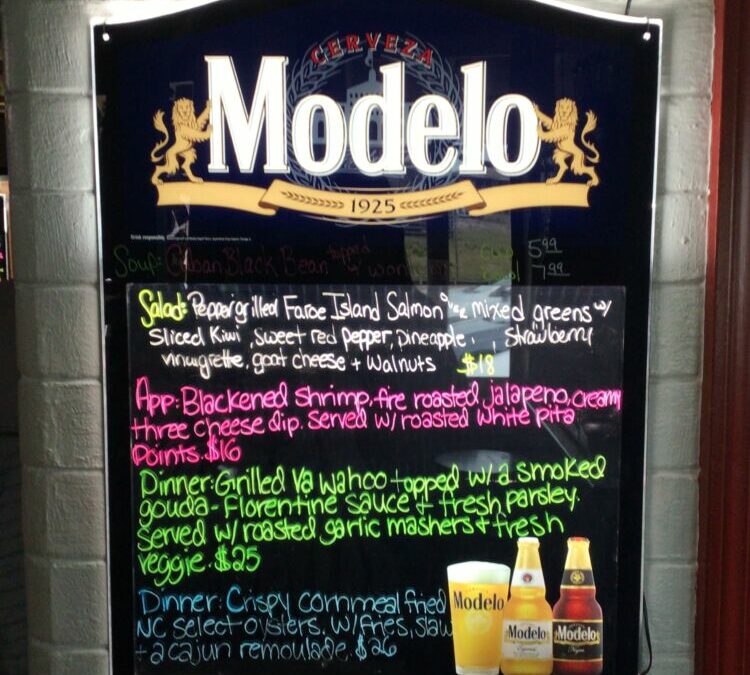 CERVEZA
Modelo
1925
Drink responsibly.
Soup: Cuban Black Bean topped
w/ won cup 5.99
bowl 7.99
Salad: Pepper grilled Faroe Island Salmon over mixed greens w/
sliced Kiwi, sweet red pepper, pineapple, strawberry
vinaigrette, goat cheese + walnuts $18
App: Blackened shrimp, fire roasted jalapeno, creamy
three cheese dip. served w/ roasted white pita
points. $16
Dinner: Grilled Va wahoo topped w/ a smoked
gouda-Florentine sauce + fresh parsley.
Served w/ roasted garlic mashers + fresh
veggie. $25
Dinner: Crispy cornmeal fried
NC select oysters. w/ fries, slaw
+ a cajun remoulade. $26
Modelo
Modelo
Especial
Modelo
Negra